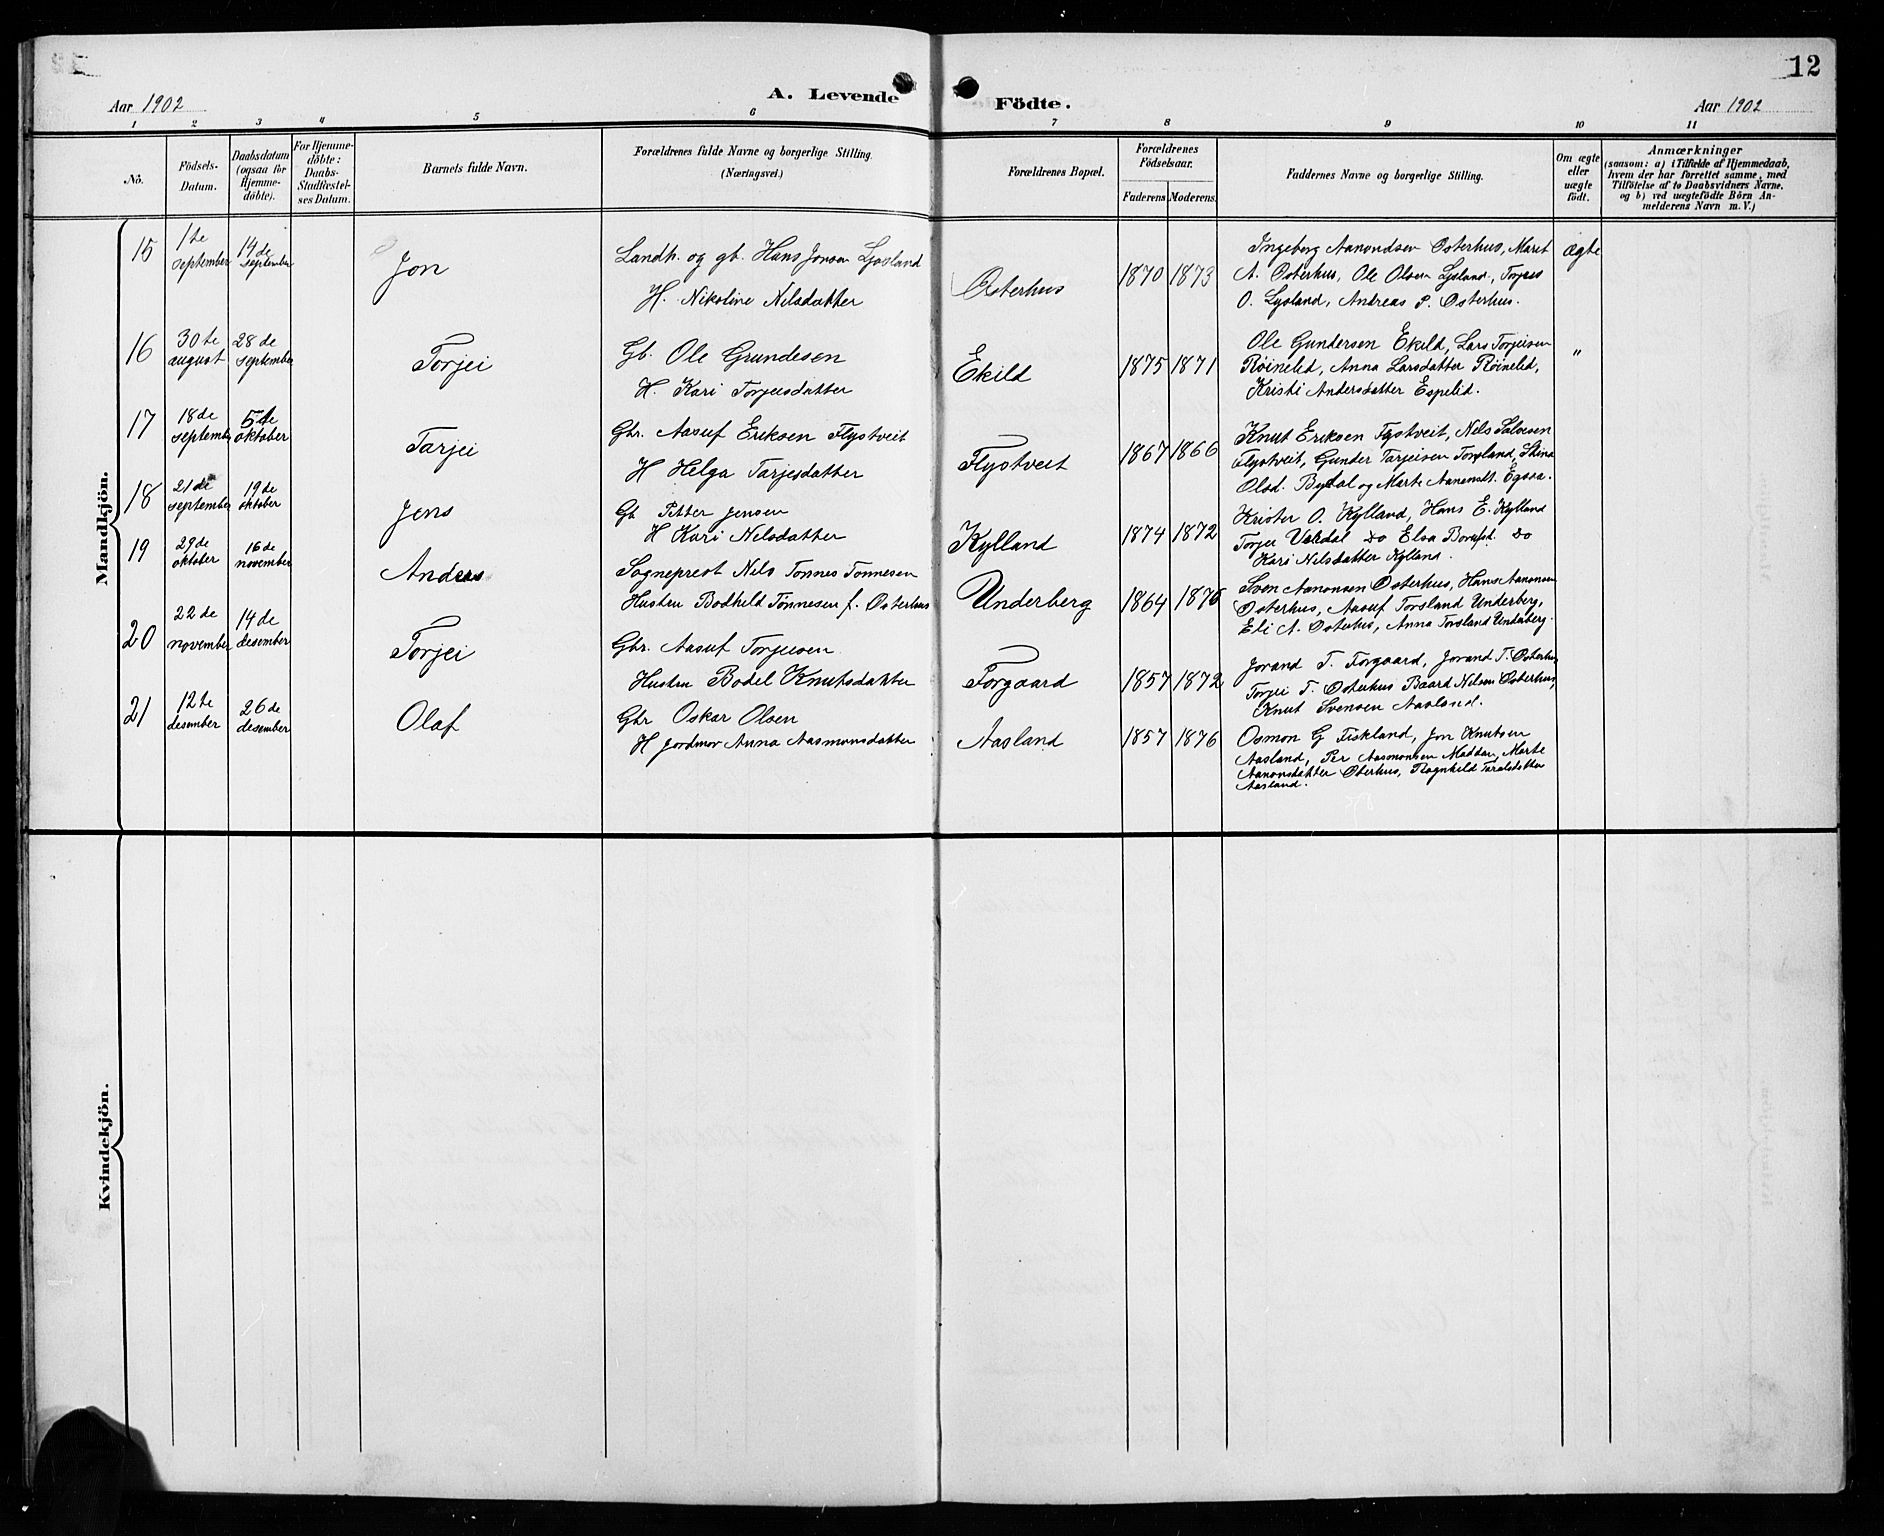 12
Aar 1902
A. Levende Födte.
Aar 1902
1 2 3 4 5 6 7 8 9 10 11
No.
Födsels-Datum.
Daabsdatum (ogsaa for Hjemmedöbte).
For Hjemmedöbte: Daabs-Stadfestelses Datum.
Barnets fulde Navn.
Forældrenes fulde Navne og borgerlige Stilling. (Næringsvei.)
Forældrenes Bopæl.
Forældrenes Födselsaar.
Faderens. Moderens.
Faddernes Navne og borgerlige Stilling.
Om ægte eller uægte födt.
Anmærkninger
(saasom: a) i Tilfælde af Hjemmedaab,
hvem der har forrettet samme, med
Tilföielse af to Daabsvidners Navne,
og b) ved uægtefödte Börn An-
melderens Navn m. V.)
Mandkjön.
15
1te september
14de september
Jon
Landh. og gb. Hans Jonsen Ljosland
H. Nikoline Nilsdatter
Osterhus
1870 1873
Ingeborg Aanondsen Osterhus, Maret
A. Østerhus, Ole Olsen Lysland, Torjus
O. Lysland, Andreas P. Østerhus.
ægte
16
30te august
28de september
Torjei
Gb. Ole Grundesen
H. Kari Torjusdatter
Ekild
1875 1871
Ole Gundersen Ekild, Lars Torjeisen
Röinelid, Anna Larsdatter Röinelid,
Kristi Andersdatter Espelid.
"
17
18de september
5te oktober
Tarjei
Gbr. Aasuf Eriksen Flystveit
H Helga Tarjesdatter
Flystveit
1867 1866
Knut Eriksen Flystveit, Nils Salvesen
Flystveit, Gunder Tarjeisen Torsland, Stina
Olsd. Bydal og Marte Aanensdt. Egsaa.
18
21de september
19de oktober
Jens
Gb Petter Jensen
H Kari Nilsdatter
Kylland
1874 1872
Krister O. Kylland, Hans E. Kylland
Torjei Valdal do Elsa do
Kari Nilsdatter Kylland.
19
29de oktober
16de november
Anders
Sogneprest Nils Tönnes Tönnesen
Hustru Bodhild Tönnesen f. Osterhus
Underberg
1864 1876
Sven Aanonsen Osterhus, Hans Aanonsen
Osterhus, Aasuf Torsland Underberg,
Eli A. Osterhus, Anna Torsland Underberg.
20
22de november
14de desember
Torjei
Gbr. Aasuf Torjusen
Hustru Bodel Knutsdatter
Forgaard
1857 1872
Jorand T. Forgaard, Jorand T. Østerhus
Torjei T. Østerhus Baard Nilsen Osterhus,
Knut Svensen Aasland.
21
12te desember
26de desember
Olaf
Gbr Oskar Olsen
H Jordmor Anna Aasmunsdatter
Aasland
1857 1876
Osmon G Fiskland, Jon Knutsen
Aasland, Per Aasmonsen Haddan, Marte
Aanonsdatter Osterhus, Ragnhild Taralsdatter
Aasland.
Kvindekjön.